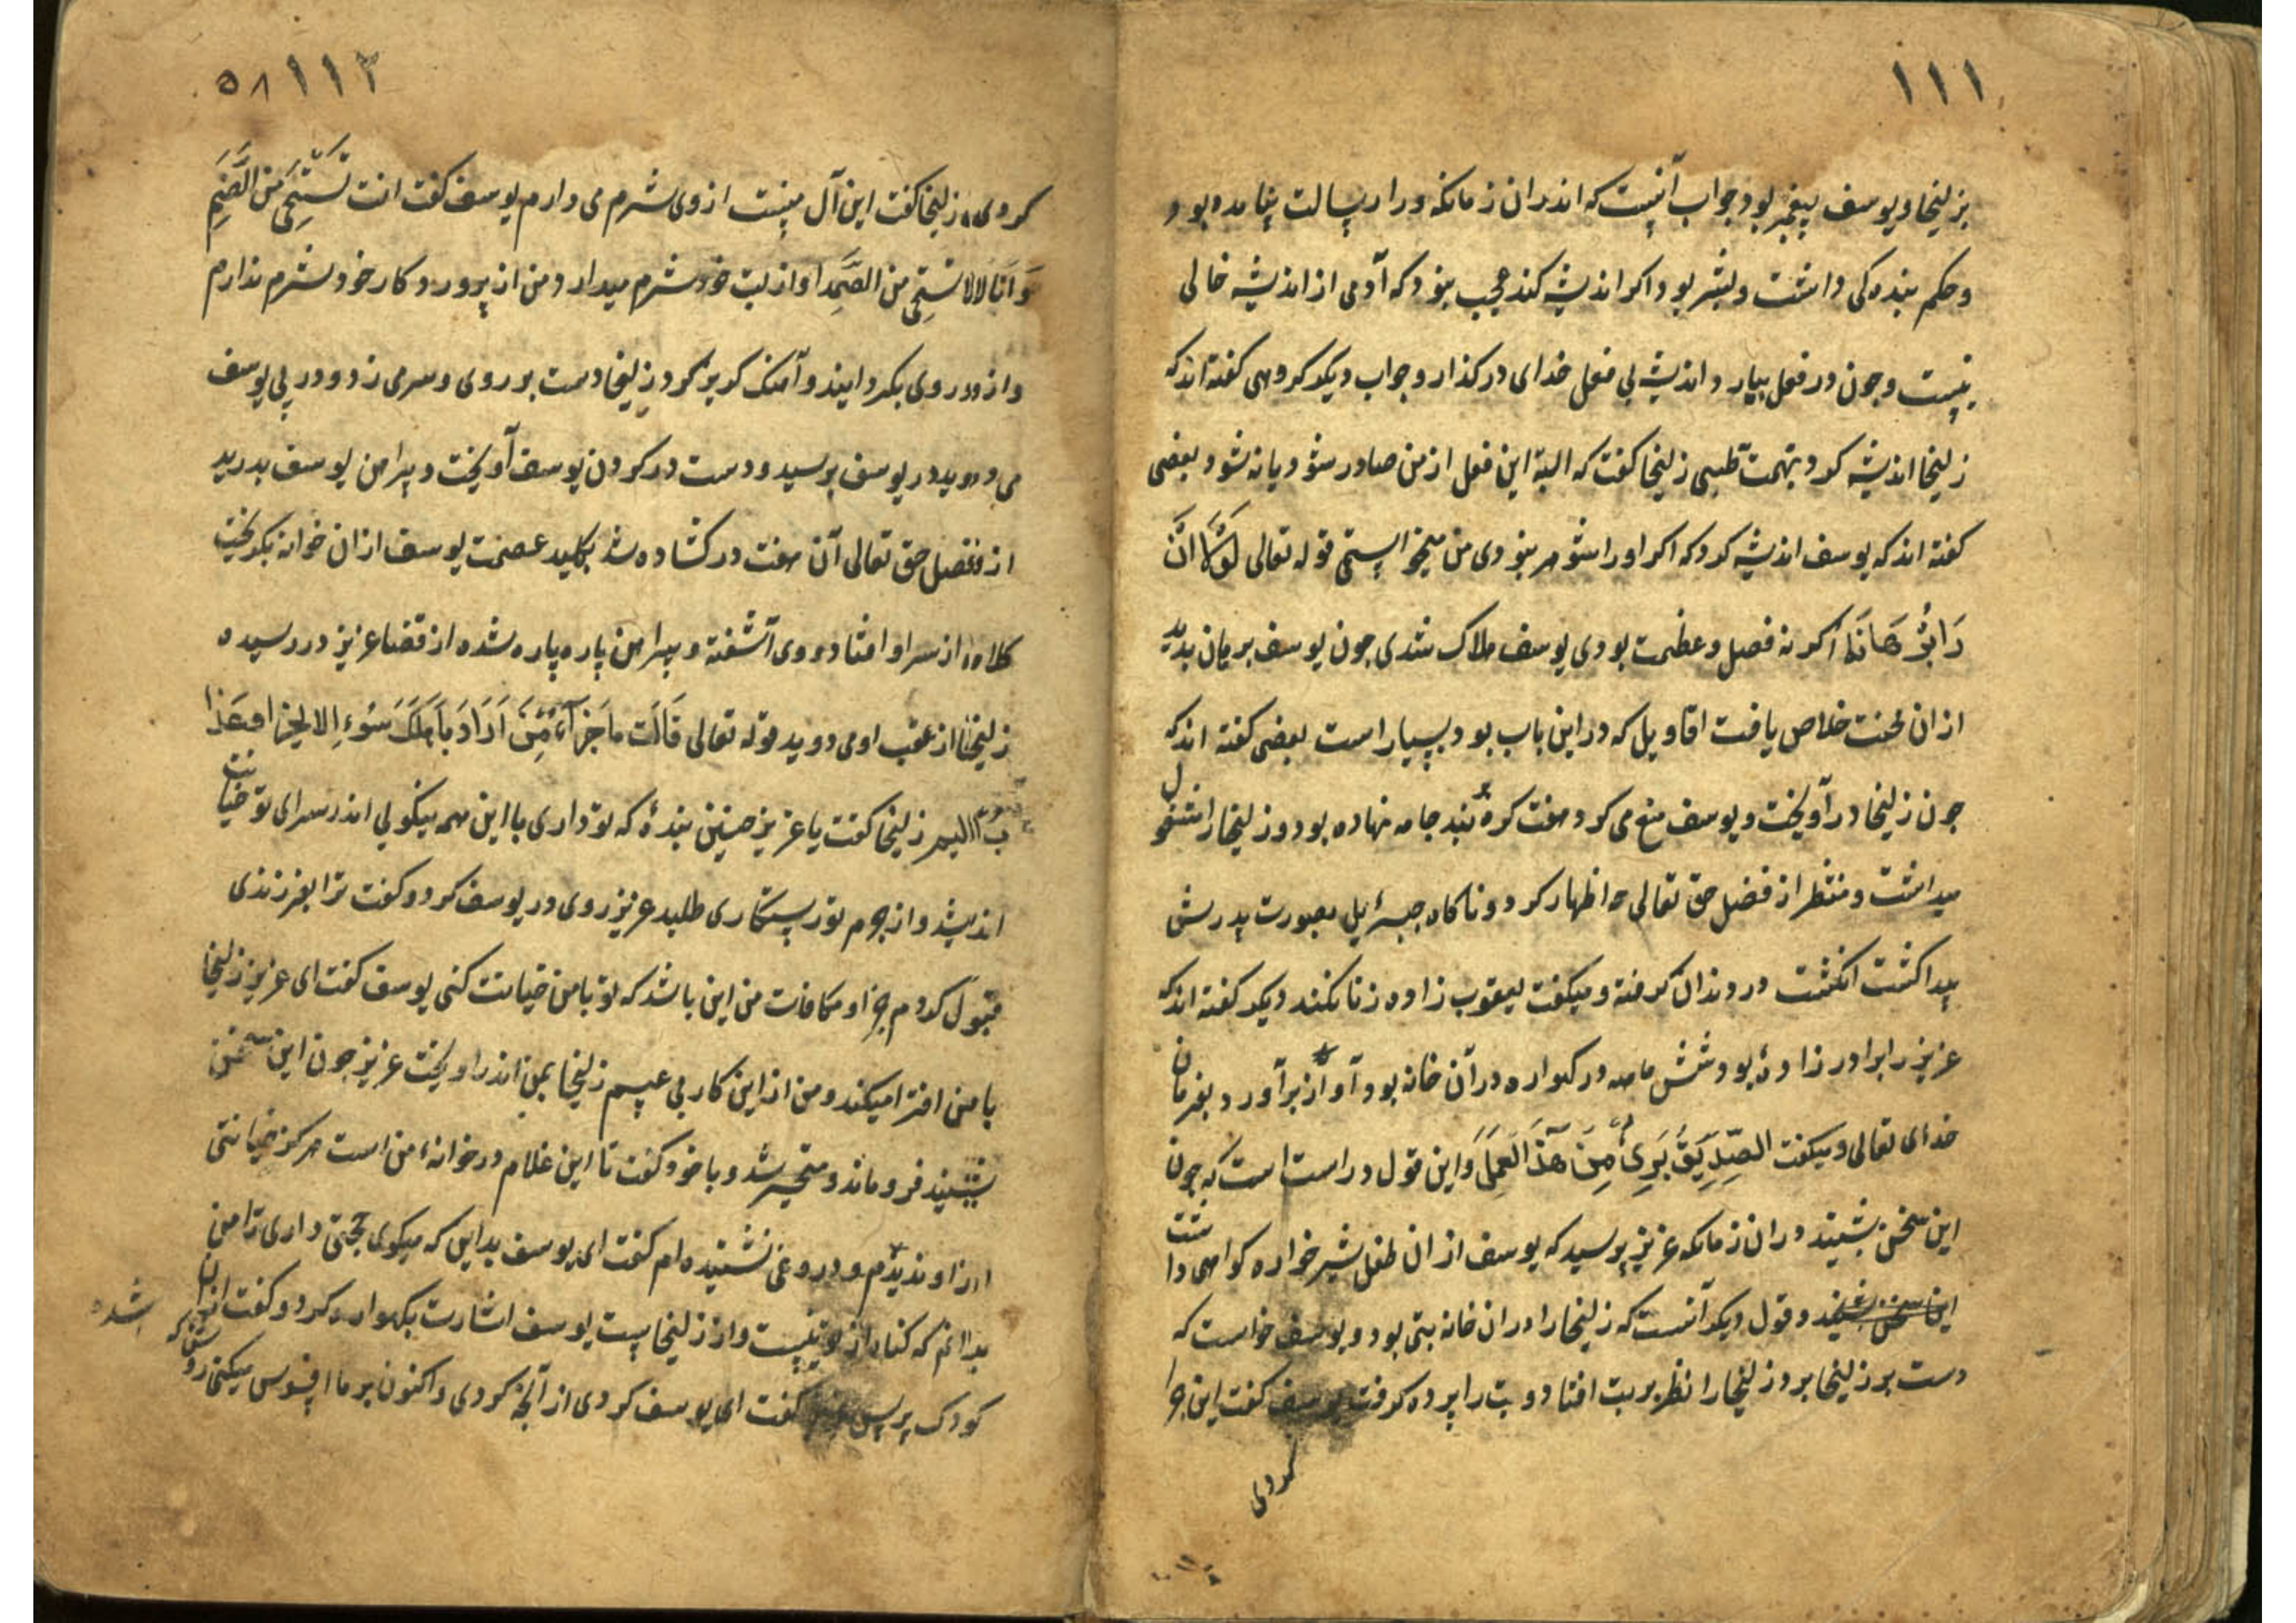 ۱۱۱
بزلیخا و یوسف پیغمبر بود جواب آنست که اندران زمانکه ورا رسالت نیامده بود
و حکم بنده کی داشت و بشر بود اکر اندیشه کند عجیب نبود که آدمی از اندیشه خالی
نیست و چون در فعل بیارد اندیشه بی فعل خدای در کذارد و جواب دیکر کروهی کفته اند که
زلیخا اندیشه کرد بتهمت طبعی زلیخا کفت که البته این فعل از من صادر شود یا نه شود بعضی
کفته اند که یوسف اندیشه کرد که اکر او را شوهر نبودی من میخواستمی قوله تعالی لَوْلَا اَنْ
رَا بُرْهَانَ اکر نه فضل و عظمت بودی یوسف هلاک شدی جون یوسف برهان بدید
از ان محنت خلاص یافت اقاویل که در این باب بود بسیار است بعضی کفته اند که
جون زلیخا در آویخت و یوسف منع می کرد هفت کره بر بند جامه نهاده بود و زلیخا را مشغول
میداشت و منتظر از فضل حق تعالی چه اظهار کرد و ناکاه جبرئیل بصورت پدرش
پیدا کشت انکشت در دندان کرفته و میکفت یعقوب زاده زنا نکند دیکر کفته اند که
عزیز را برادر زادهٔ بود شش ماهه در کهواره در آن خانه بود آواز برآورد بفرمان
خدای تعالی و میکفت الصِّدِّیقُ بَرِیءٌ مِنْ هَذَا الْعَمَلِ و این قول دراست است که جون
این سخن بشنید در ان زمانکه عزیز پرسید که یوسف از ان طفل شیر خواره کواهی داشت
این سخن بشنید و قول دیکر آنست که زلیخا را در ان خانه بتی بود و یوسف خواست که
دست بر زلیخا برد زلیخا را نظر بر بت افتاد و بت را پرده کرفت یوسف کفت این چرا
کردی
۱۱۲ ۵۸
کردی زلیخا کفت این آل منست از وی شرم می دارم یوسف کفت انت تَسْتَحِی مِنَ الصَّنَمِ
وَ اَنَا لا استحی من الصَّمَد او از بت خود شرم میدارد و من از پروردکار خود شرم ندارم
و از و روی بکردانید و آهنک کریز کرد زلیخا دست بر روی و سر می زد و در پی یوسف
می دوید در یوسف برسید و دست در کردن یوسف آویخت و پیراهن یوسف بدرید
از فضل حق تعالی آن هفت در کشاده شد بکلید عصمت یوسف از ان خوانه بکریخت
کلاه از سر او افتاد و وی آشفته و پیراهن پاره پاره شده از قضا عزیز در رسیده
زلیخا از عقب او می دوید قوله تعالی قَالَت مَا جَزَآءُ مَنْ اَرَادَ بِاَهْلِکَ سُوءً اِلا یسجن او عَذَا
ب الیم زلیخا کفت یا عزیز چنین بندهٔ که تو داری با این همه نیکویی اندر سرای تو خیانت
اندیشد و از جرم تو رستکاری طلبد عزیز روی در یوسف کرد و کفت ترا بفرزندی
قبول کردم جزا و مکافات من این باشد که تو با من خیانت کنی یوسف کفت ای عزیز زلیخا
با من افترا میکند و من از این کار بی عیبم زلیخا بمن اندر اویخت عزیز جون این سخن
بشنید فرو ماند و متحیر شد و با خود کفت تا این غلام در خوانهٔ من است هرکز خیانتی
از او ندیدم و دروغی نشنیده ام کفت ای یوسف بدایل که میکوی حجتی داری تا من
بدانم که کناه از تو نیست و از زلیخاست یوسف اشارت بکهواره کرد و کفت از ان
کودک پرس عزیز کفت ای یوسف کردی از آنچه کردی و اکنون بر ما افسوس میکنی روشن که
شده